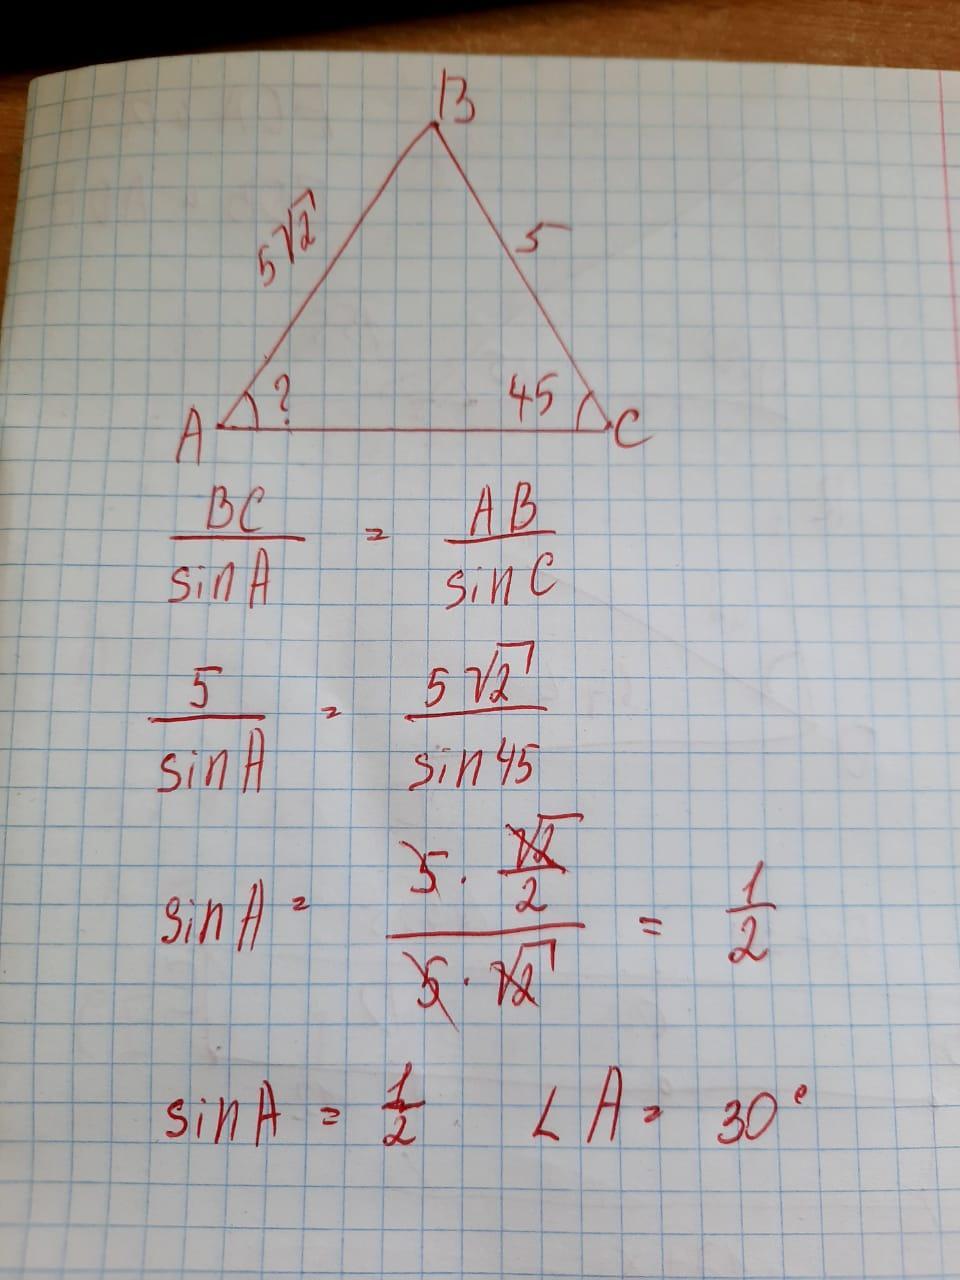 B
5√2
5
A
?
45
C
BC/sin A = AB/sin C
5/sin A = 5√2/sin 45
sin A = (5 · √2/2)/(5 · √2) = 1/2
sin A = 1/2 ∠A = 30°